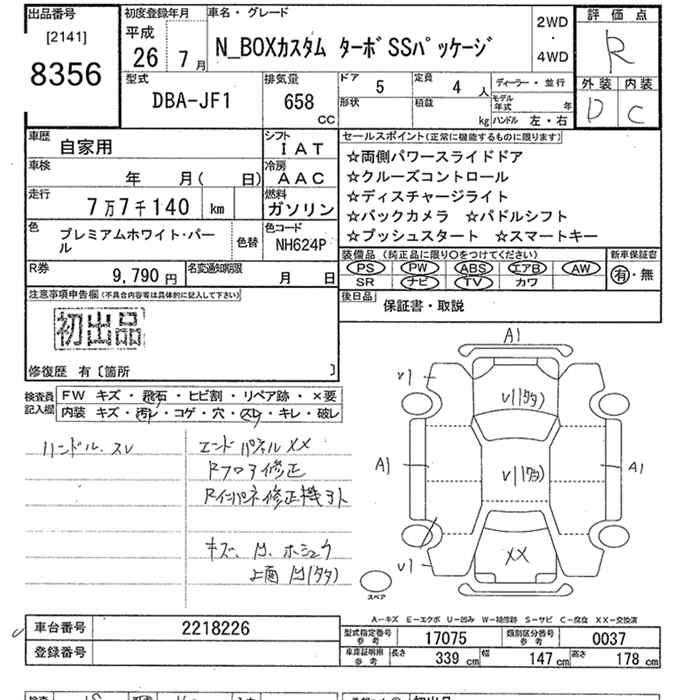 出品番号 初度登録年月 車名・グレード 評価点
[2141] 平成 2WD
8356 26 7月 N_BOXカスタム ターボSSパッケージ ・ R
4WD
型式 排気量 ドア 5 定員 4人 ディーラー・並行 外装 内装
DBA-JF1 658 形状 積載 モデル年式 年 D C
cc kg ハンドル 左・右
車歴 自家用 シフト IAT セールスポイント(正常に機能するものに限ります)
車検 年 月( 日) 冷房 AAC ☆両側パワースライドドア
☆クルーズコントロール
走行 7万7千140 km 燃料 ガソリン ☆ディスチャージライト
☆バックカメラ ☆パドルシフト
色 プレミアムホワイト・パール 色替 色コード NH624P ☆プッシュスタート ☆スマートキー
装備品(純正品に限り○をつけてください) 新車保証書
R券 9,790円 名変通知期限 月 日 PS PW ABS エアB AW 有・無
SR ナビ TV カワ
注意事項申告欄(不具合内容等は具体的に記入して下さい) 後日品 保証書・取説
初出品
修復歴 有〔箇所 〕
検査員記入欄 FW キズ・飛石・ヒビ割・リペア跡・×要
内装 キズ・汚レ・コゲ・穴・スレ・キレ・破レ
A1
√1
√1(タタ)
ハンドル.スレ エンドパネルXX
Rフロア修正 A1 √1(タタ) A1
Rインパネ修正機ヨト
キズ、凹、ホシュウ XX
上面凹(タタ) √1
スペア
A-キズ E-エクボ U-凹み W-補修跡 S-サビ C-腐食 XX-交換済
車台番号 2218226 型式指定番号参考 17075 類別区分番号参考 0037
登録番号 車庫証明用参考 長さ 339cm 幅 147cm 高さ 178cm